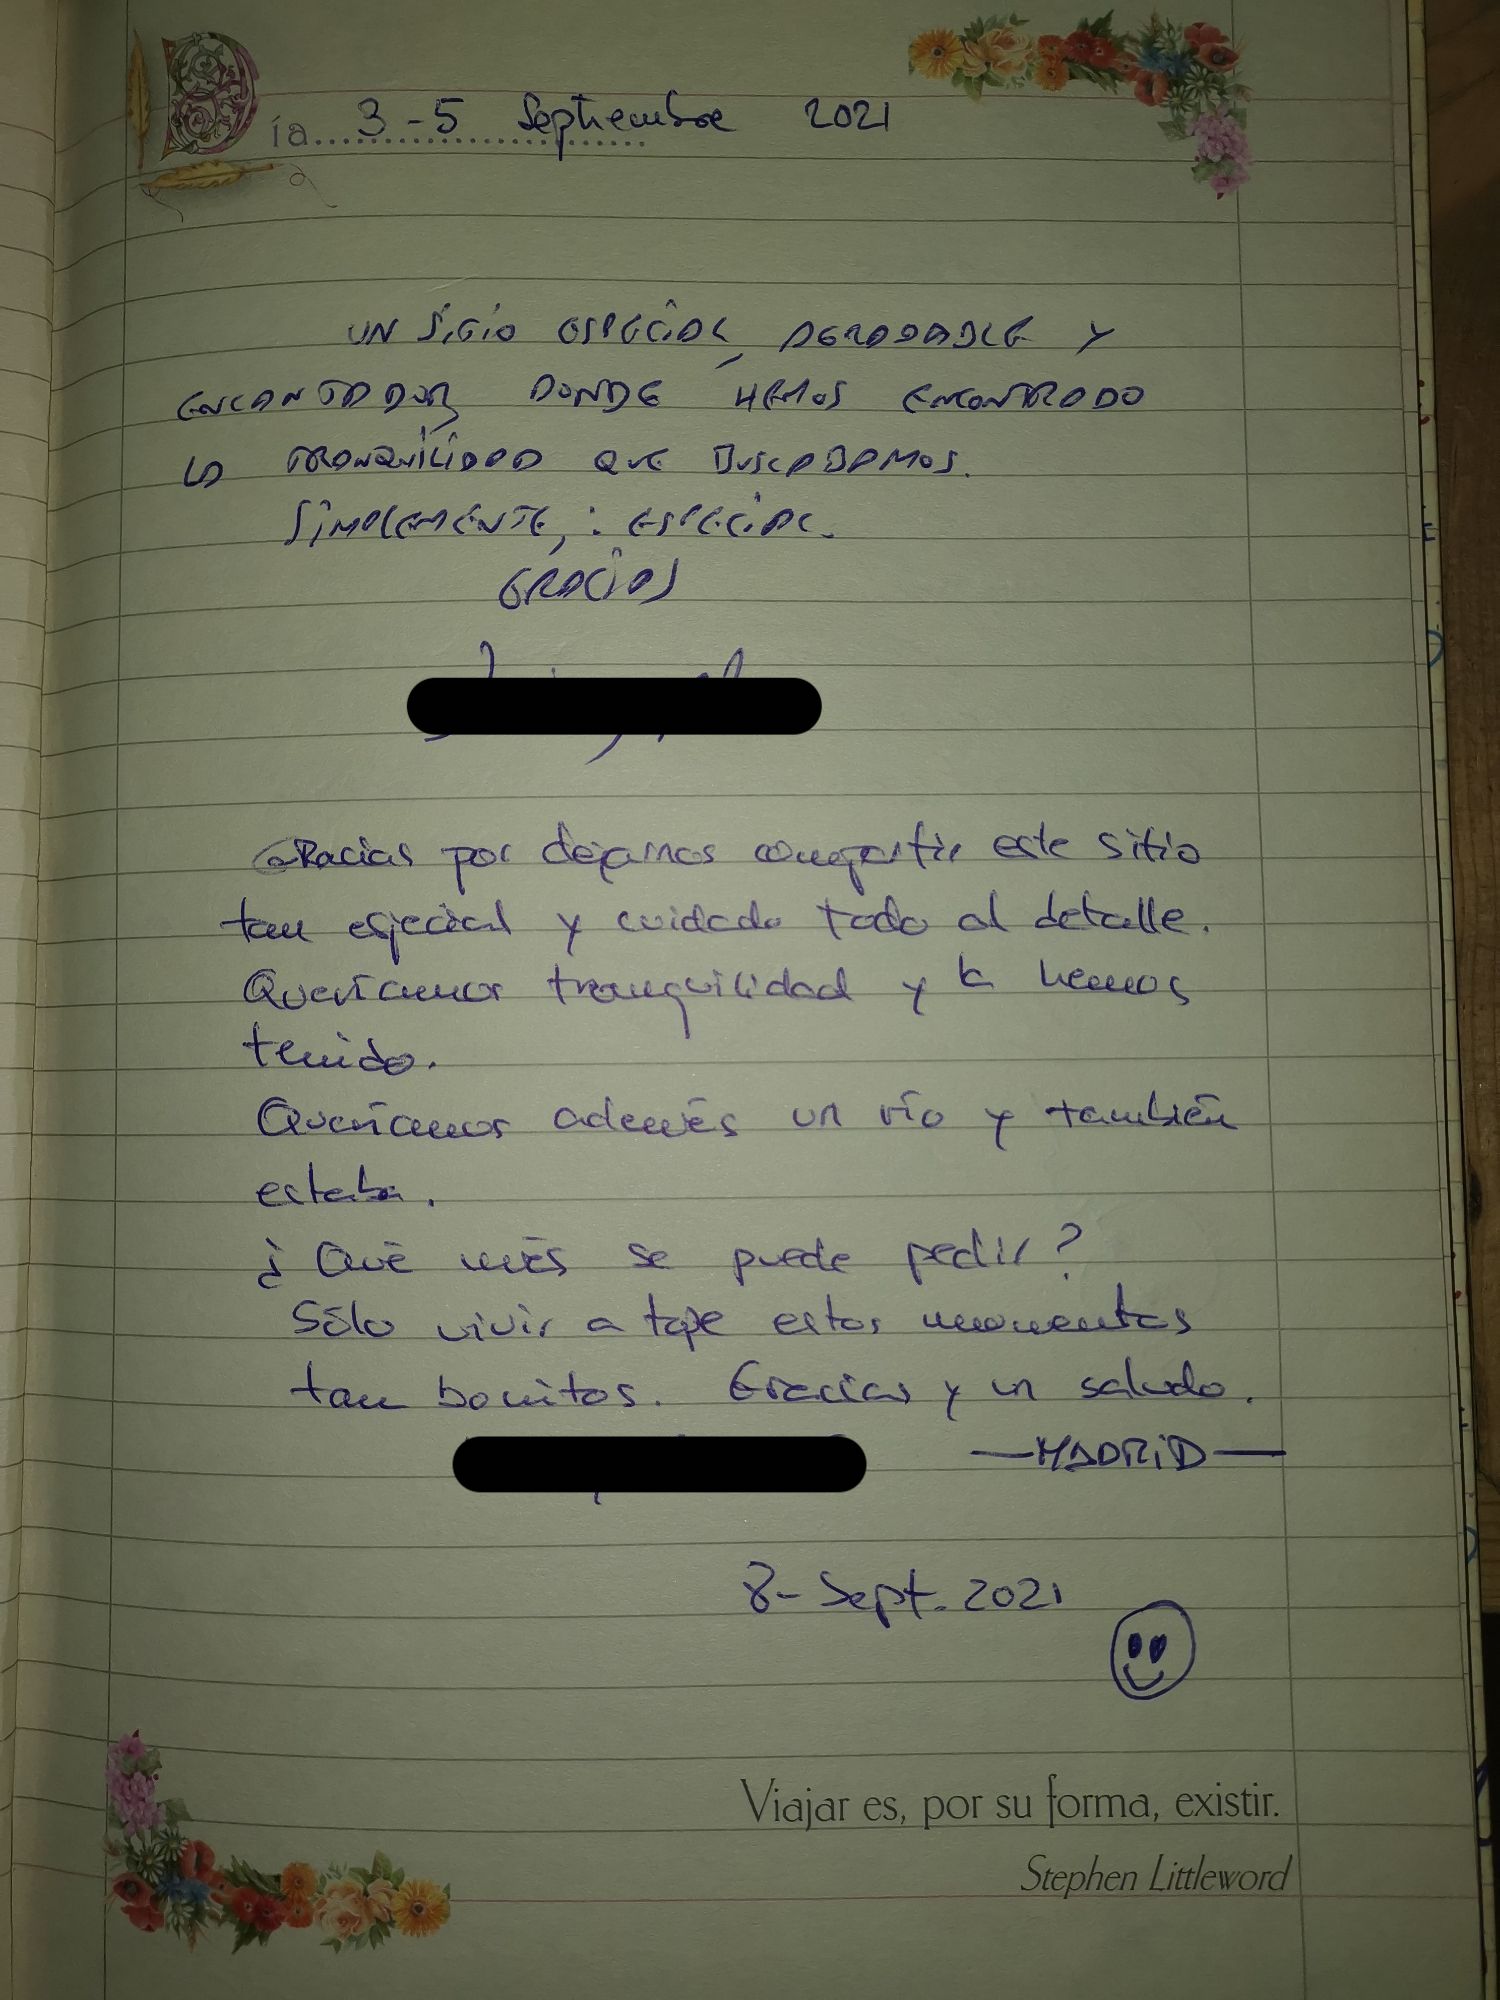 Día 3-5 Septiembre 2021
UN SITIO ESPECIAL, AGRADABLE Y
ENCANTADOR, DONDE HEMOS ENCONTRADO
LA TRANQUILIDAD QUE BUSCABAMOS.
SIMPLEMENTE, : ESPECIAL.
GRACIAS
Gracias por dejarnos compartir este sitio
tan especial y cuidado todo al detalle.
Queríamos tranquilidad y la hemos
tenido.
Queríamos además un río y también
estaba.
¿Qué más se puede pedir?
Sólo vivir a tope estos momentos
tan bonitos. Gracias y un saludo.
—MADRID—
8-Sept. 2021
Viajar es, por su forma, existir.
Stephen Littleword